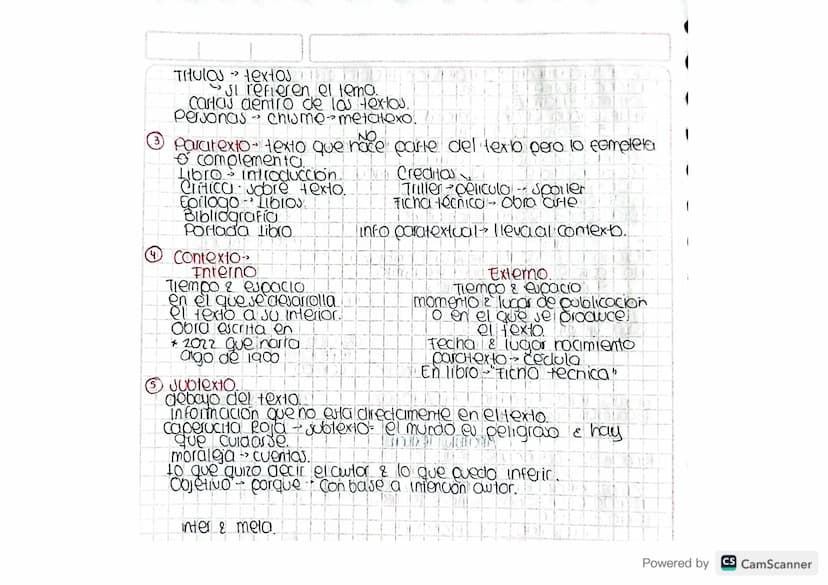 Titulos → textos
↳ si refieren el tema.
cartas dentro de los textos.
Personas → chisme → metatexo.
③ Paratexto → texto que NO hace parte del texto pero lo completa
o complementa
Libro → introducción.
Critica → sobre texto.
Epílogo → Libros
Bibliografía
Portada Libro
Creditos
Triller → pelicula → spoiler
Ficha técnica → Obra arte
info paratextual → lleva al contexto.
④ Contexto →
Interno
Tiempo & espacio
en el que se desarrolla
el texto a su interior.
Obra escrita en
* 2022 que narra
algo de 1900
Externo.
Tiempo & espacio
momento & lugar de publicacion
o en el que se produce
el texto.
Fecha & lugar nacimiento
paratexto → cedula
En libro → "Ficha tecnica"
⑤ Subtexto.
debajo del texto.
informacion que no esta directamente en el texto.
caperucita Roja → subtexto = el mundo es peligroso & hay
que cuidarse.
moraleja → cuentos.
Lo que quizo decir el autor & lo que puedo inferir.
Objetivo → porque → con base a intención autor.
inter & meta.
Powered by CS CamScanner